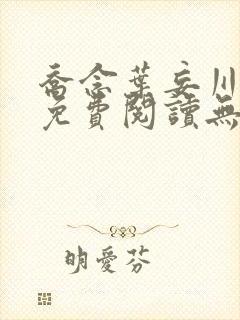 喬念葉妄川
免費閱讀無
明愛芬